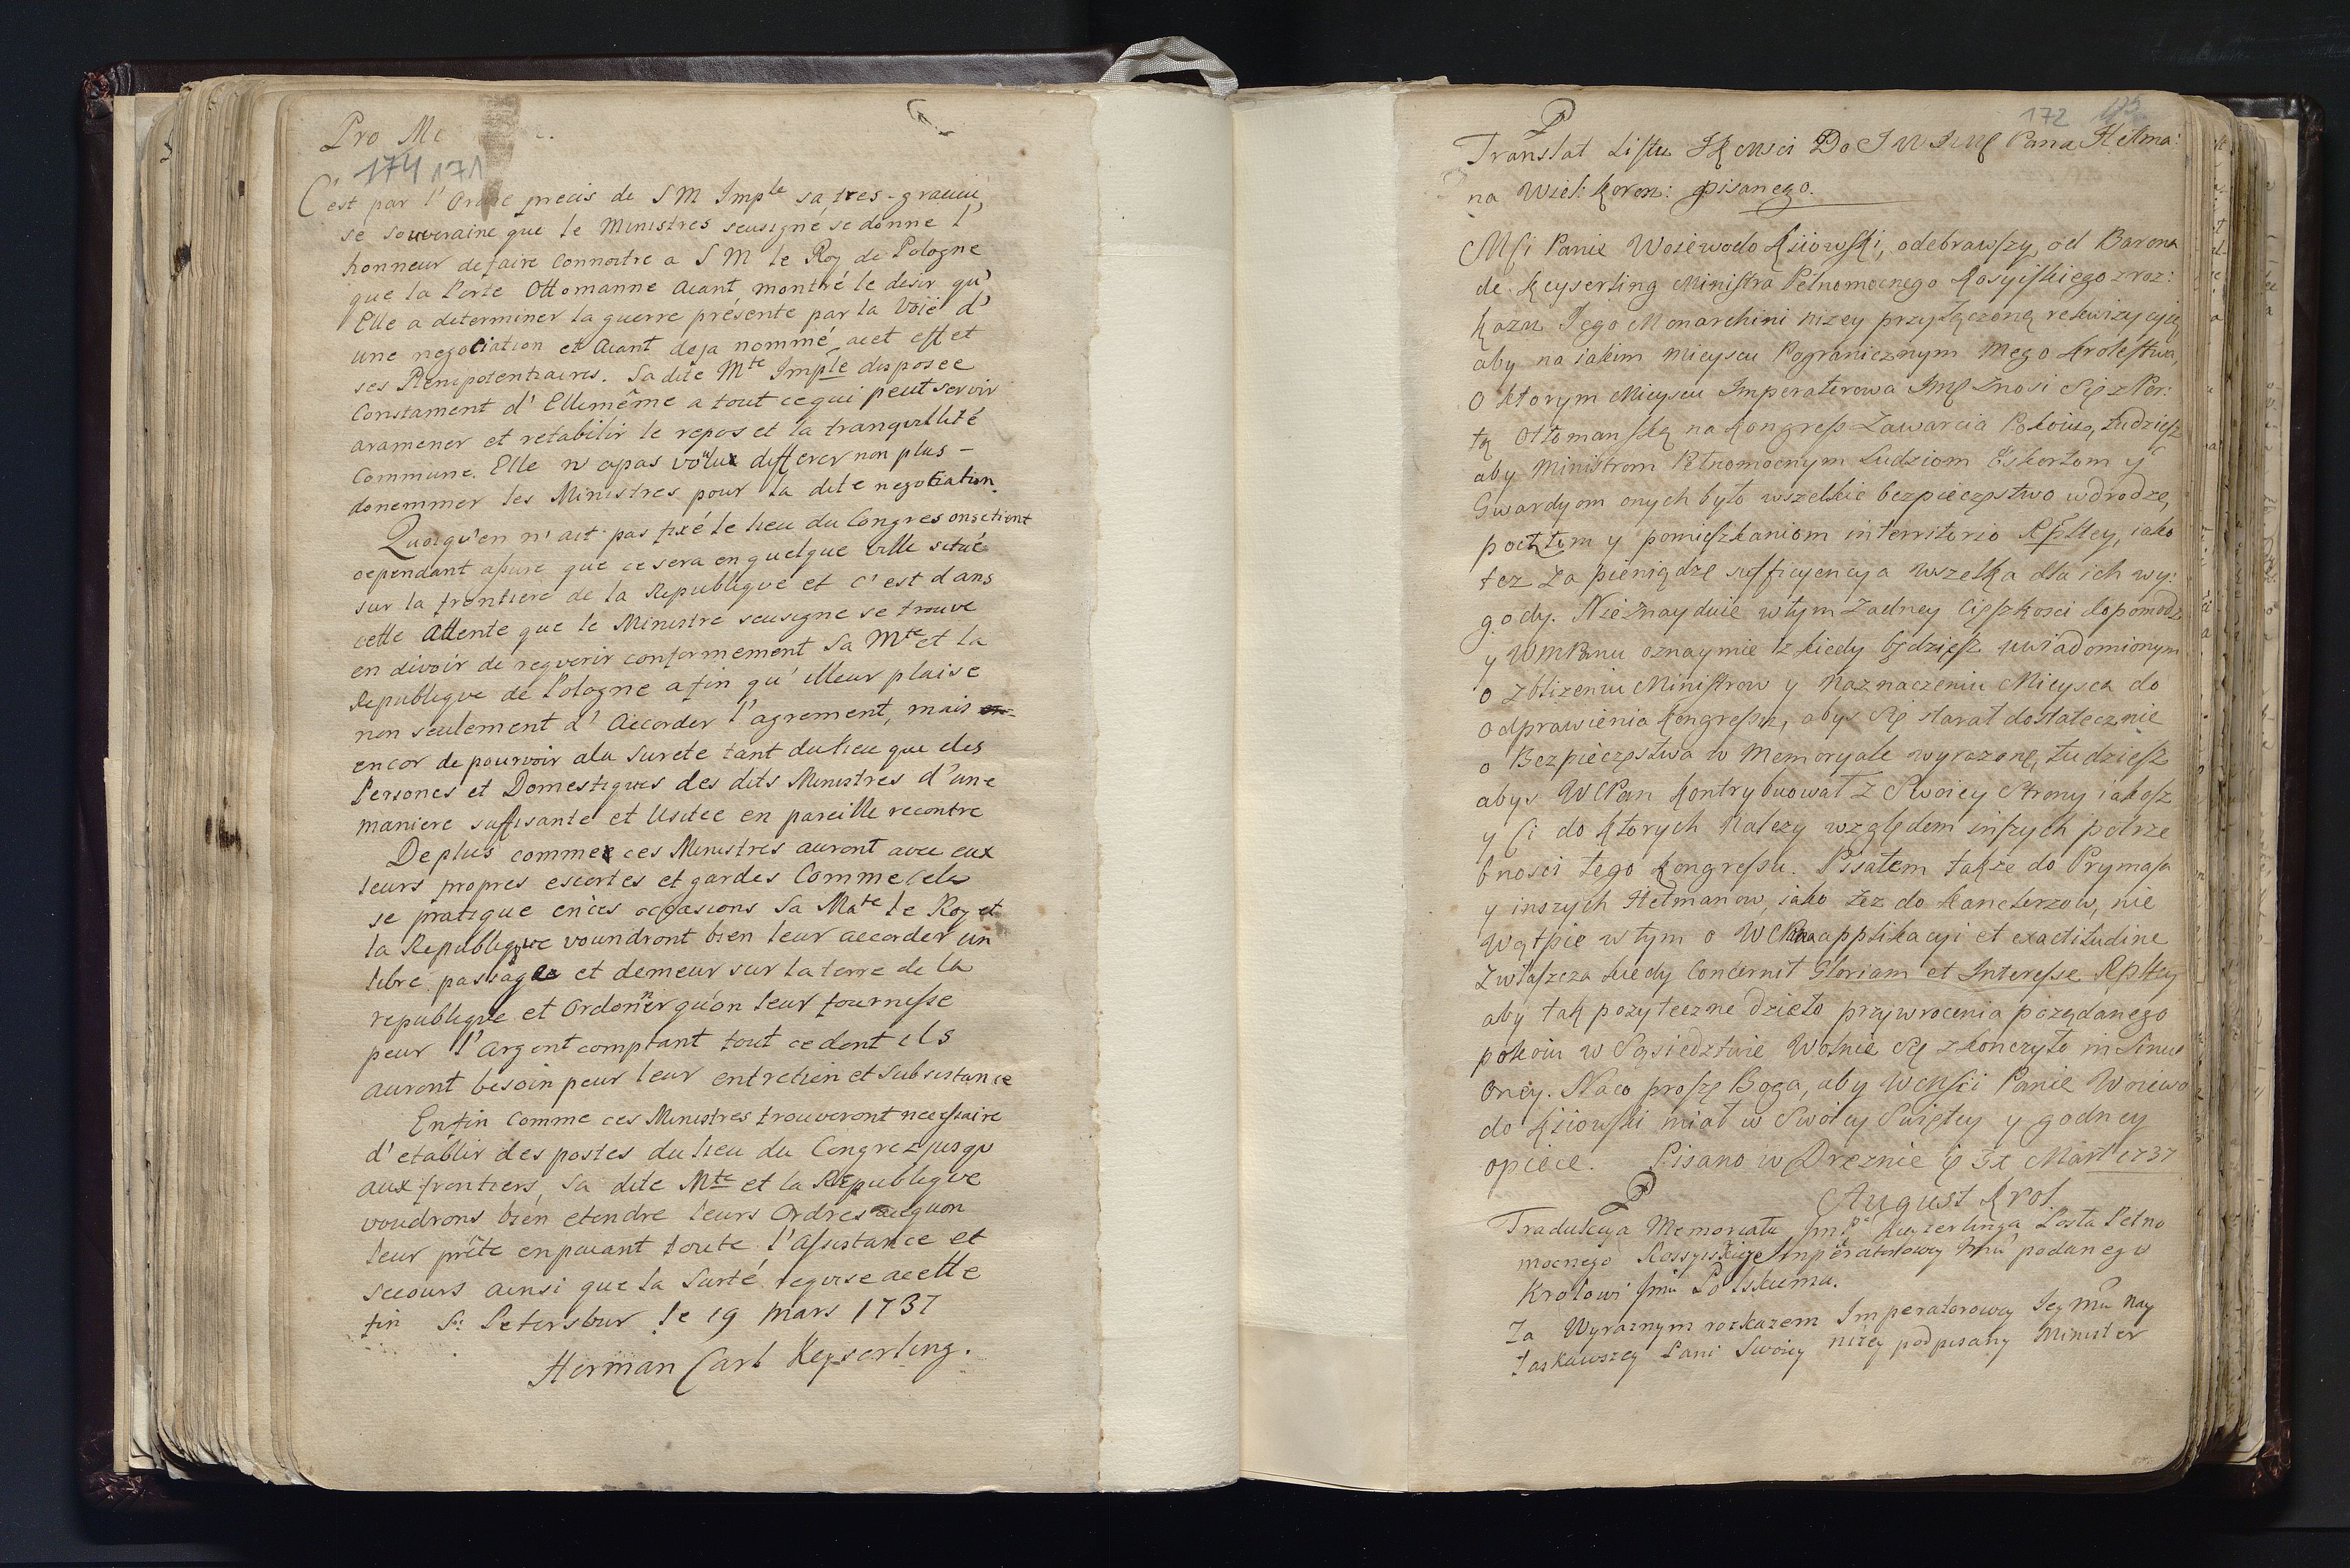 Pro Me
174 171
C'est par l'Ordre precis de S M Imple sa tres-gracieu
se Souveraine que le Ministres sousigné se donne l'
honneur de faire Connoitre a S M le Roy de Pologne
que la Porte Ottomanne aiant montré le desir qu'
Elle a determiner la guerre présente par la Voïe d'
une negotiation et aiant deja nommé acet effet
ses Plenipotentiaires. Sa dite Mte Imple disposee
Constament d'Ellemême a tout cequi peut servir
aramener et retabilir le repos et la tranquillité
Commune. Elle n'apas voulu differer non plus -
donommer les Ministres pour la dite negotiation.
Quoiqu'en n'ait pas fixé le lieu du Congres onsetient
cependant assure que ce sera en quelque ville situé
sur la frontiere de la Republique et c'est dans
cette Attente que le Ministre sousigne se trouve
en divoir de reqverir conformement Sa Mte et la
Republiqve de Pologne afin qu'illeur plaise
non seulement d'Accorder l'agrement, mais
encor de pourvoir ala Surete tant dulieu que des
Persones et Domestiqves des dits Ministres d'une
maniere suffisante et Usitee en pareille recontre
De plus comme ces Ministres auront avec eux
leurs propres escortes et gardes Comme cela
se pratique en ces occasions Sa Mate le Roy et
la Republiqve voundront bien leur accorder un
libre passage et demeur sur la terre de la
republiqve et Ordonner qu'on leur fournisse
peur l'Argent comptant tout ce dont ils
auront besoin peur leur entretien et Subsistance
Enfin Comme ces Ministres trouveront necessaire
d'etablir des postes du lieu du Congrez jusqu
aux frontiers, Sa dite Mte et la Republiqve
voudrons bien etendre leurs Ordres aequon
leur prête enpaiant toute l'Assistance et
secours ainsi que la Surté reqvise acette
fin St Petersbur le 19 Mars 1737
Herman Carl Keyserling.
172
Translat Listu JKrMsci Do JWJMP Pana Hetma:
na Wiel: Koron: pisanego.
MSi Panie Woiewodo Kiiowski, odebrawszy od Barona
de Keyserling Ministra Pełnomocnego Rosyiskiego z roz:
kazu Jego Monarchini nizey przyłączoną rekwizycyią
aby na iakim mieyscu Pogranicznym Mego Krolestwa,
o ktorym Mieyscu Imperatorowa Imę Znosi Się z Por:
tą Ottomanską na Kongress Zawarcia Pokoiu, tudziesz
aby Ministrom Pełnomocnym Ludziom Eskortom y
Gwardyom onych było wszelkie bezpieczęstwo wdrodze,
pocztom y pomieszkaniom in territorio Rpltey, iako
tez Za pieniądze sufficyencya Wszelka dla ich wy:
gody. Nie Znayduie wtym Zadney Cięszkosci dopomodz
y WMPanu oznaymie iz kiedy będziesz uwiadomionym
o zblizeniu Ministrow y Naznaczeniu Mieysca do
odprawienia Kongressu, abys Się starał dostatecznie
o Bezpieczęstwa w Memoryale wyrazone, tudziesz
abys WPan Kontrybuował Z Swoiey Strony iakosz
y Ci do Ktorych Nalezy względem inszych potrze
bnosci tego Kongressu. Pisałem także do Prymasa
y inszych Hetmanow, iako też do Kanclerzow, nie
Wątpie w tym o applikacyi et exactitudine
Zwłaszcza kiedy Concernit Gloriam et Interesse Rpltey
aby tak pozyteczne dzieło przywrocenia poządanego
pokoiu w Sąsiedztwie Wolnie Się zkonczyło in Sinu
Oney. Naco proszę Boga, aby WMsci Panie Woiewo
do Kiiowski miał w Swoiey Swiętey y godney
opiece. Pisano w Dreznie 31 Mart 1737
August Krol.
Tradukcya Memoriału Imp Kayzerlinga Posła Pełno
mocnego Rossyiskiege Imperatorowey Imci podanego
Krolowi Imci Polskiemu.
Za Wyraznym rozkazem Imperatorowey Jey Mci Nay
łaskawszey Pani Swoiey niżey podpisany Minister